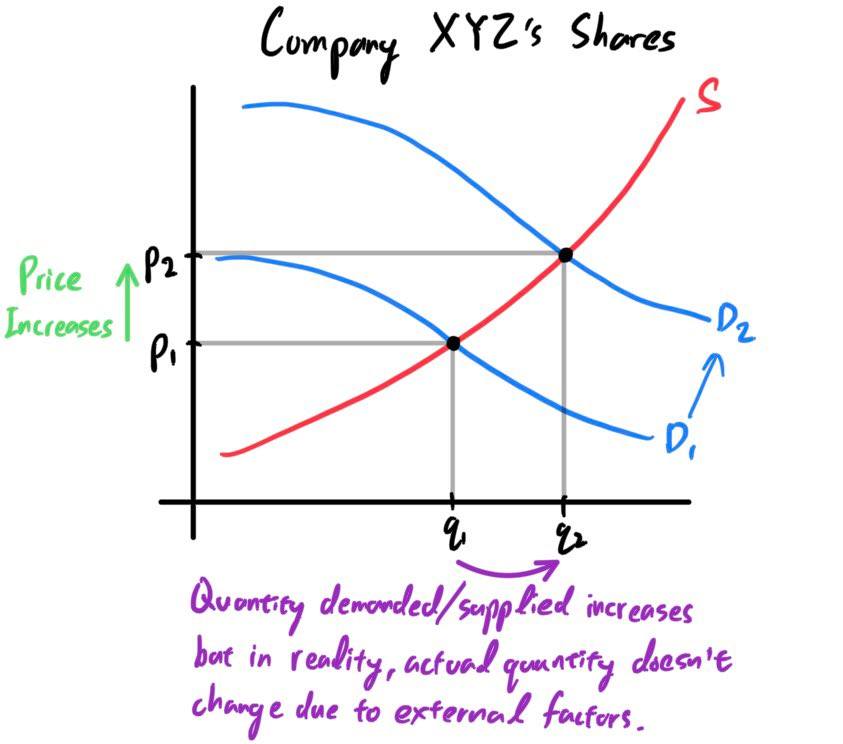 Company XYZ's Shares
S
P2
Price
Increases
P1
D2
D1
q1
q2
Quantity demanded/supplied increases
but in reality, actual quantity doesn't
change due to external factors.